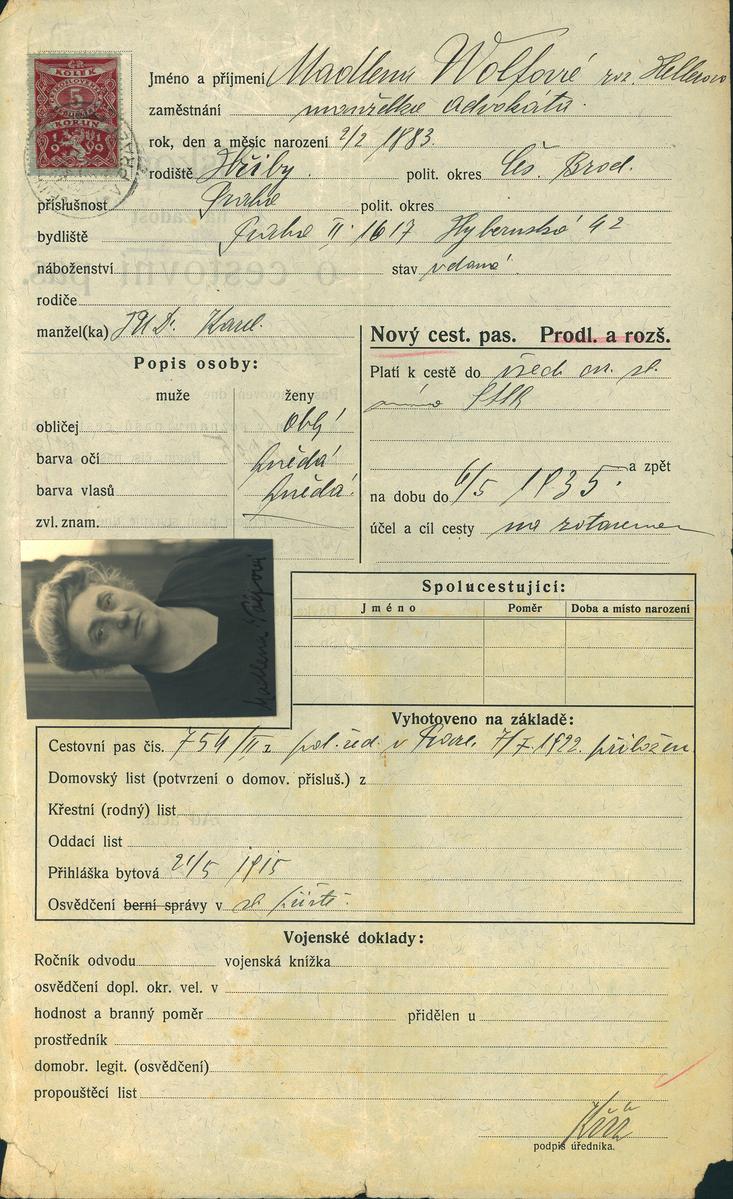 KOLEK
5
KORUN
V PRAZE
Jméno a příjmení Madlena Wolfová roz. Hellerová
zaměstnání manželka advokáta.
rok, den a měsíc narození 2/2 1883.
rodiště Hřiby. polit. okres Čes. Brod.
příslušnost Praha polit. okres
bydliště Praha II. 1617 Hybernská 42
náboženství stav vdaná.
rodiče
manžel(ka) JUDr. Karel.
Nový cest. pas. Prodl. a rozš.
Popis osoby:
Platí k cestě do všech
muže ženy
obličej oblý
barva očí hnědá
a zpět
barva vlasů hnědá.
na dobu do 6/5 1935.
zvl. znam.
účel a cíl cesty na zotavenou
Madlena Wolfová
Spolucestující:
Jméno Poměr Doba a místo narození
Vyhotoveno na základě:
Cestovní pas čís. 754/II pol. řed. v Praze. 7/7. 1922. přiložen
Domovský list (potvrzení o domov. přísluš.) z
Křestní (rodný) list
Oddací list
Přihláška bytová 21/5 1915
Osvědčení berní správy v
Vojenské doklady:
Ročník odvodu vojenská knížka
osvědčení dopl. okr. vel. v
hodnost a branný poměr přidělen u
prostředník
domobr. legit. (osvědčení)
propouštěcí list
podpis úředníka.